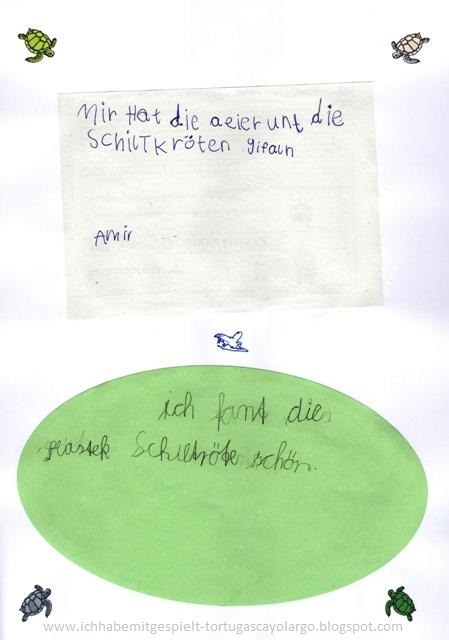 Mir Hat die aeier unt die
SCHiLTKröten gifaln
Amir
ich fant die
plastek Schiltröte schön.
www.ichhabemitgespielt-tortugascayolargo.blogspot.com